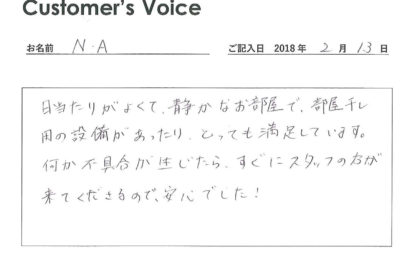 Customer's Voice
お名前 N・A ご記入日 2018年 2月 13日
日当たりがよくて、静かなお部屋で、部屋干し
用の設備があったり、とっても満足しています。
何か不具合が生じたら、すぐにスタッフの方が
来てくださるので、安心でした！